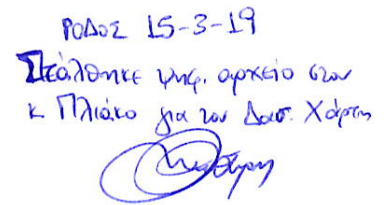 ΡΟΔΟΣ 15-3-19
Στάλθηκε ψηφ. αρχείο στον
κ Πλιάκο για τον Δασ. Χάρτη